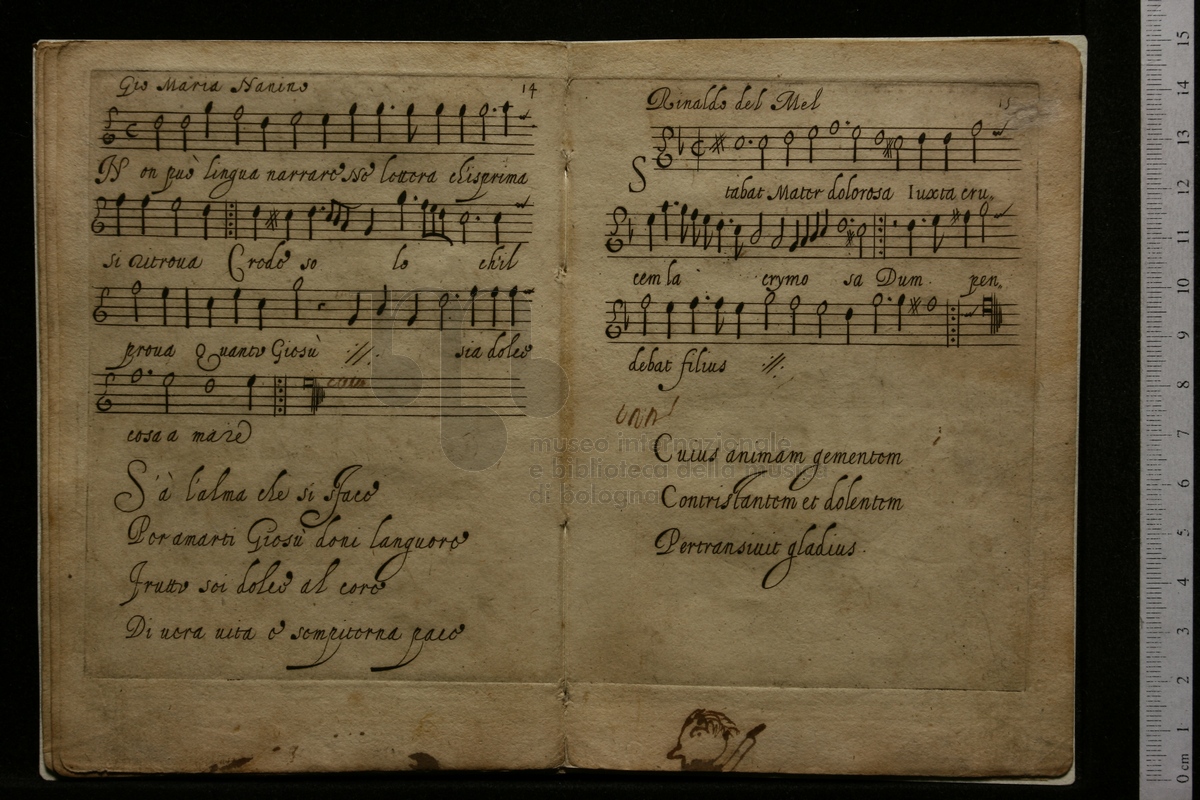 Gio Maria Nanino
14
Non può lingua narrare Ne lettera ch'isprima
si ritroua Credo so lo ch'il
proua Quanto Giesù :||: sia dolce
cosa a mare
S'à l'alma che si sface
Per amarti Giesù doni languore
Frutto sei dolce al core
Di uera uita e sempiterna pace
Rinaldo del Mel
15
Stabat Mater dolorosa Iuxta cru,
cem la crymo sa Dum pen,
debat filius :||:
Cuius animam gementem
Contristantem et dolentem
Pertransiuit gladius.
museo internazionale
e biblioteca della musica
di bologna
0 cm 1 2 3 4 5 6 7 8 9 10 11 12 13 14 15